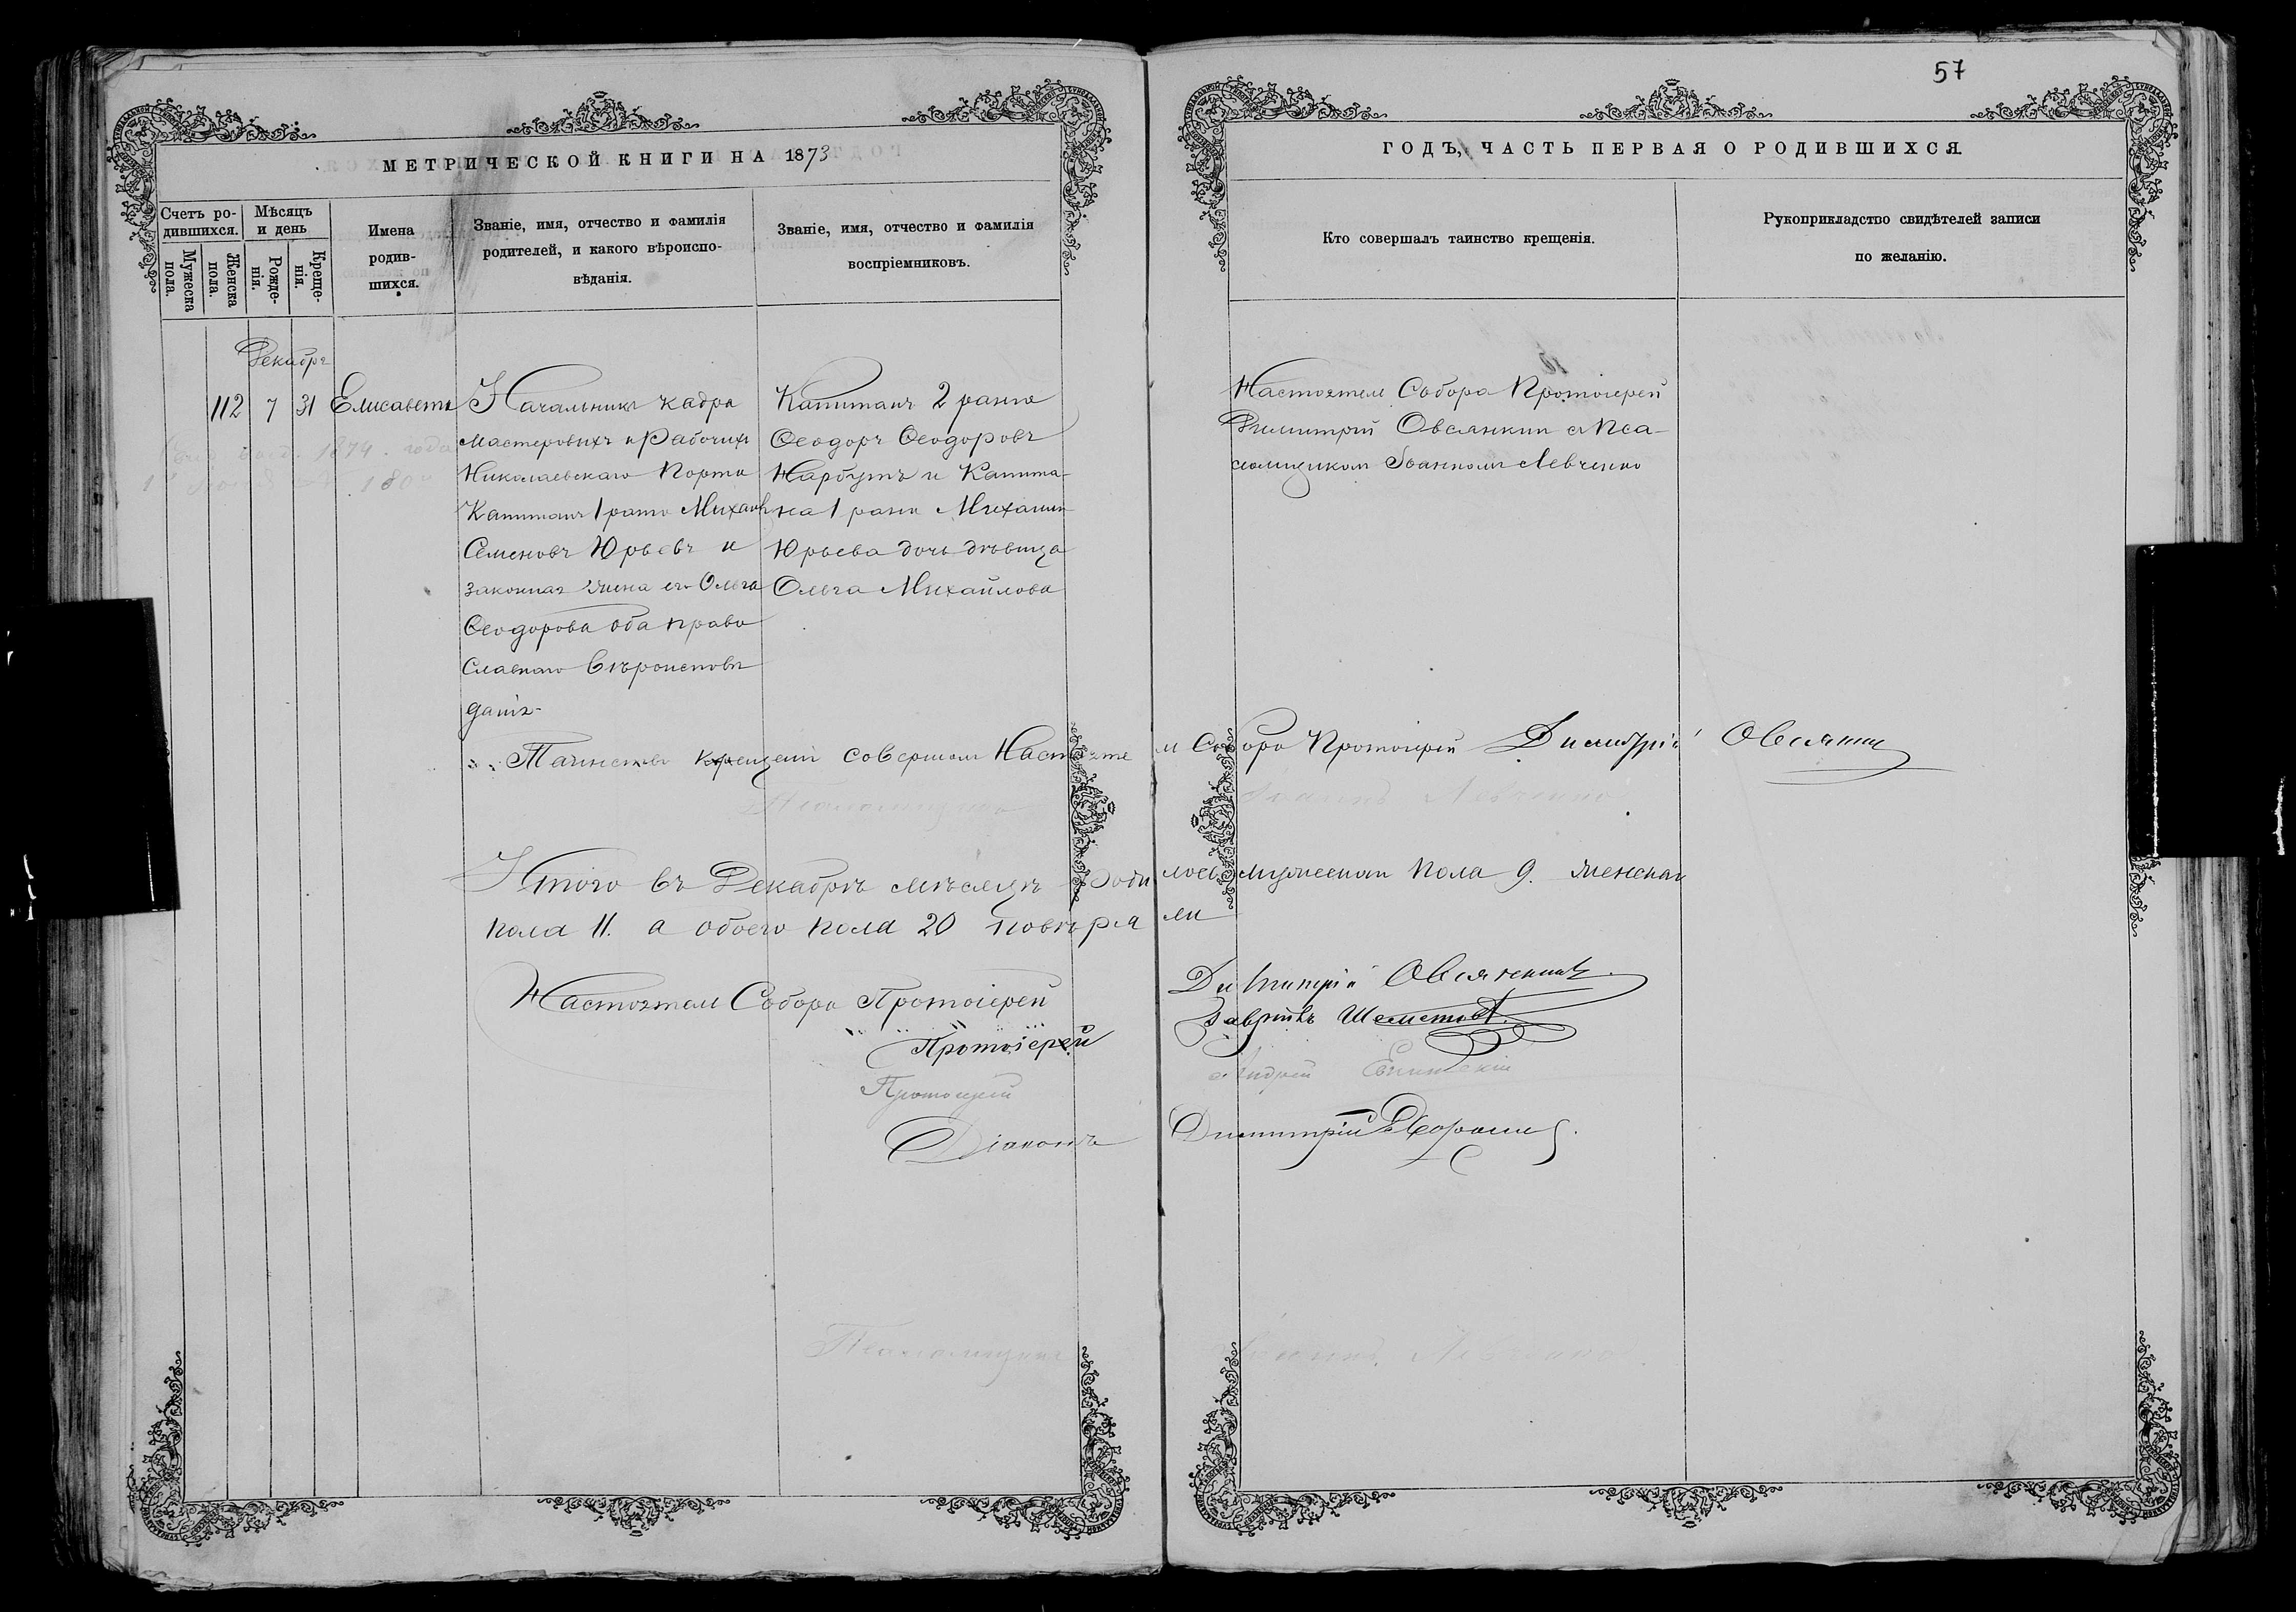 57
МЕТРИЧЕСКОЙ КНИГИ НА 1873
ГОДЪ, ЧАСТЬ ПЕРВАЯ О РОДИВШИХСЯ.
Счетъ ро-
дившихся.
Мужеска
пола.
Женска
пола.
Мѣсяцъ
и день
Рожде-
нія.
Креще-
нія.
Имена
родив-
шихся.
Званіе, имя, отчество и фамилія
родителей, и какого вѣроиспо-
вѣданія.
Званіе, имя, отчество и фамилія
воспріемниковъ.
Кто совершалъ таинство крещенія.
Рукоприкладство свидѣтелей записи
по желанію.
Декабря
112 7 31 Елисавета
Начальникъ кадра
Мастеровыхъ и Рабочихъ
Николаевскаго Порта
Капитанъ 1 ранга Михаилъ
Семеновъ Юрьевъ и
законная жена его Ольга
Ѳеодорова оба право
славнаго вѣроисповѣ
данія.
Капитанъ 2 ранга
Ѳеодоръ Ѳеодоровъ
Нарбутъ и Капита-
на 1 ранга Михаила
Юрьева дочь дѣвица
Ольга Михайлова
Настоятель Собора Протоіерей
Димитрій Овсянкинъ съ Пса-
ломщикомъ Іоанномъ Левченко
1874 года
Таинство крещенія совершалъ Настояте ль Собора Протоіерей Димитрій Овсянкинъ
Псаломщикъ Іоаннъ Левченко
Итого въ Декабрѣ мѣсяцѣ роди лось мужескаго пола 9. женскаго
пола 11. а обоего пола 20 повѣря ли
Настоятель Собора Протоіерей Димитрій Овсянкинъ
Протоіерей Гавріилъ
Протоіерей Андрей
Діаконъ Димитрій
Псаломщикъ Іоаннъ Левченко